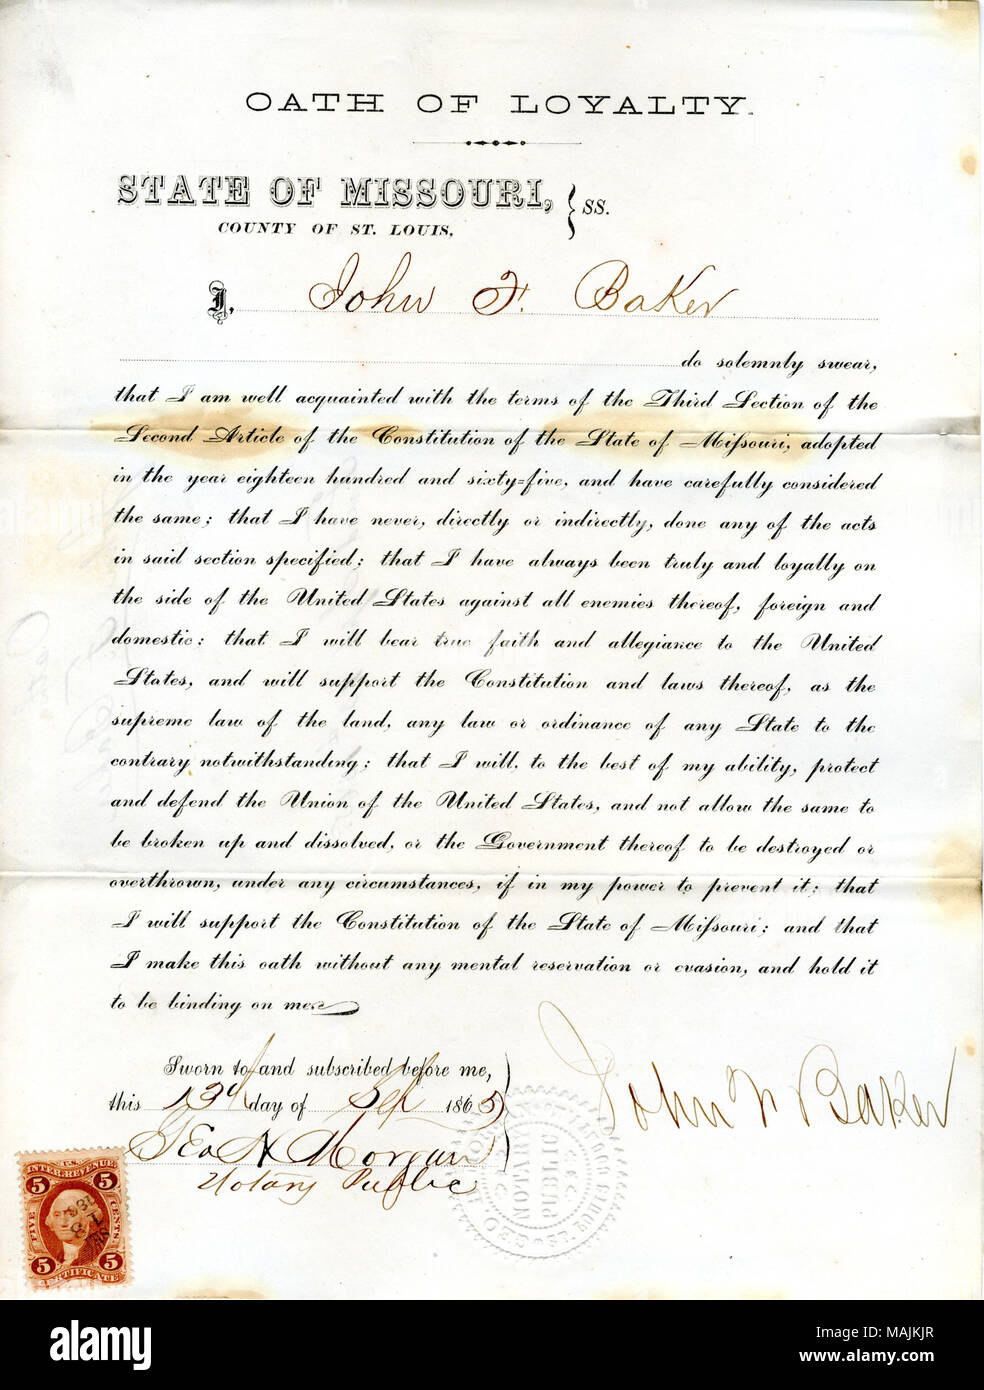 OATH OF LOYALTY.
STATE OF MISSOURI,
COUNTY OF ST. LOUIS.
} SS.
I, John F. Baker
do solemnly swear,
that I am well acquainted with the terms of the Third Section of the
Second Article of the Constitution of the State of Missouri, adopted
in the year eighteen hundred and sixty-five, and have carefully considered
the same; that I have never, directly or indirectly, done any of the acts
in said section specified; that I have always been truly and loyally on
the side of the United States against all enemies thereof, foreign and
domestic; that I will bear true faith and allegiance to the United
States, and will support the Constitution and laws thereof, as the
supreme law of the land, any law or ordinance of any State to the
contrary notwithstanding; that I will, to the best of my ability, protect
and defend the Union of the United States, and not allow the same to
be broken up and dissolved, or the Government thereof to be destroyed or
overthrown, under any circumstances, if in my power to prevent it; that
I will support the Constitution of the State of Missouri; and that
I make this oath without any mental reservation or evasion, and hold it
to be binding on me.
Sworn to and subscribed before me,
this 13th day of Sept 1865
Geo H Morgan
Notary Public
John F Baker
NOTARY
PUBLIC
ST. LOUIS
U.S.
INTER. REVENUE
5 5
FIVE CENTS
5 5
CERTIFICATE
alamy
Image ID: MAJKJR
www.alamy.com